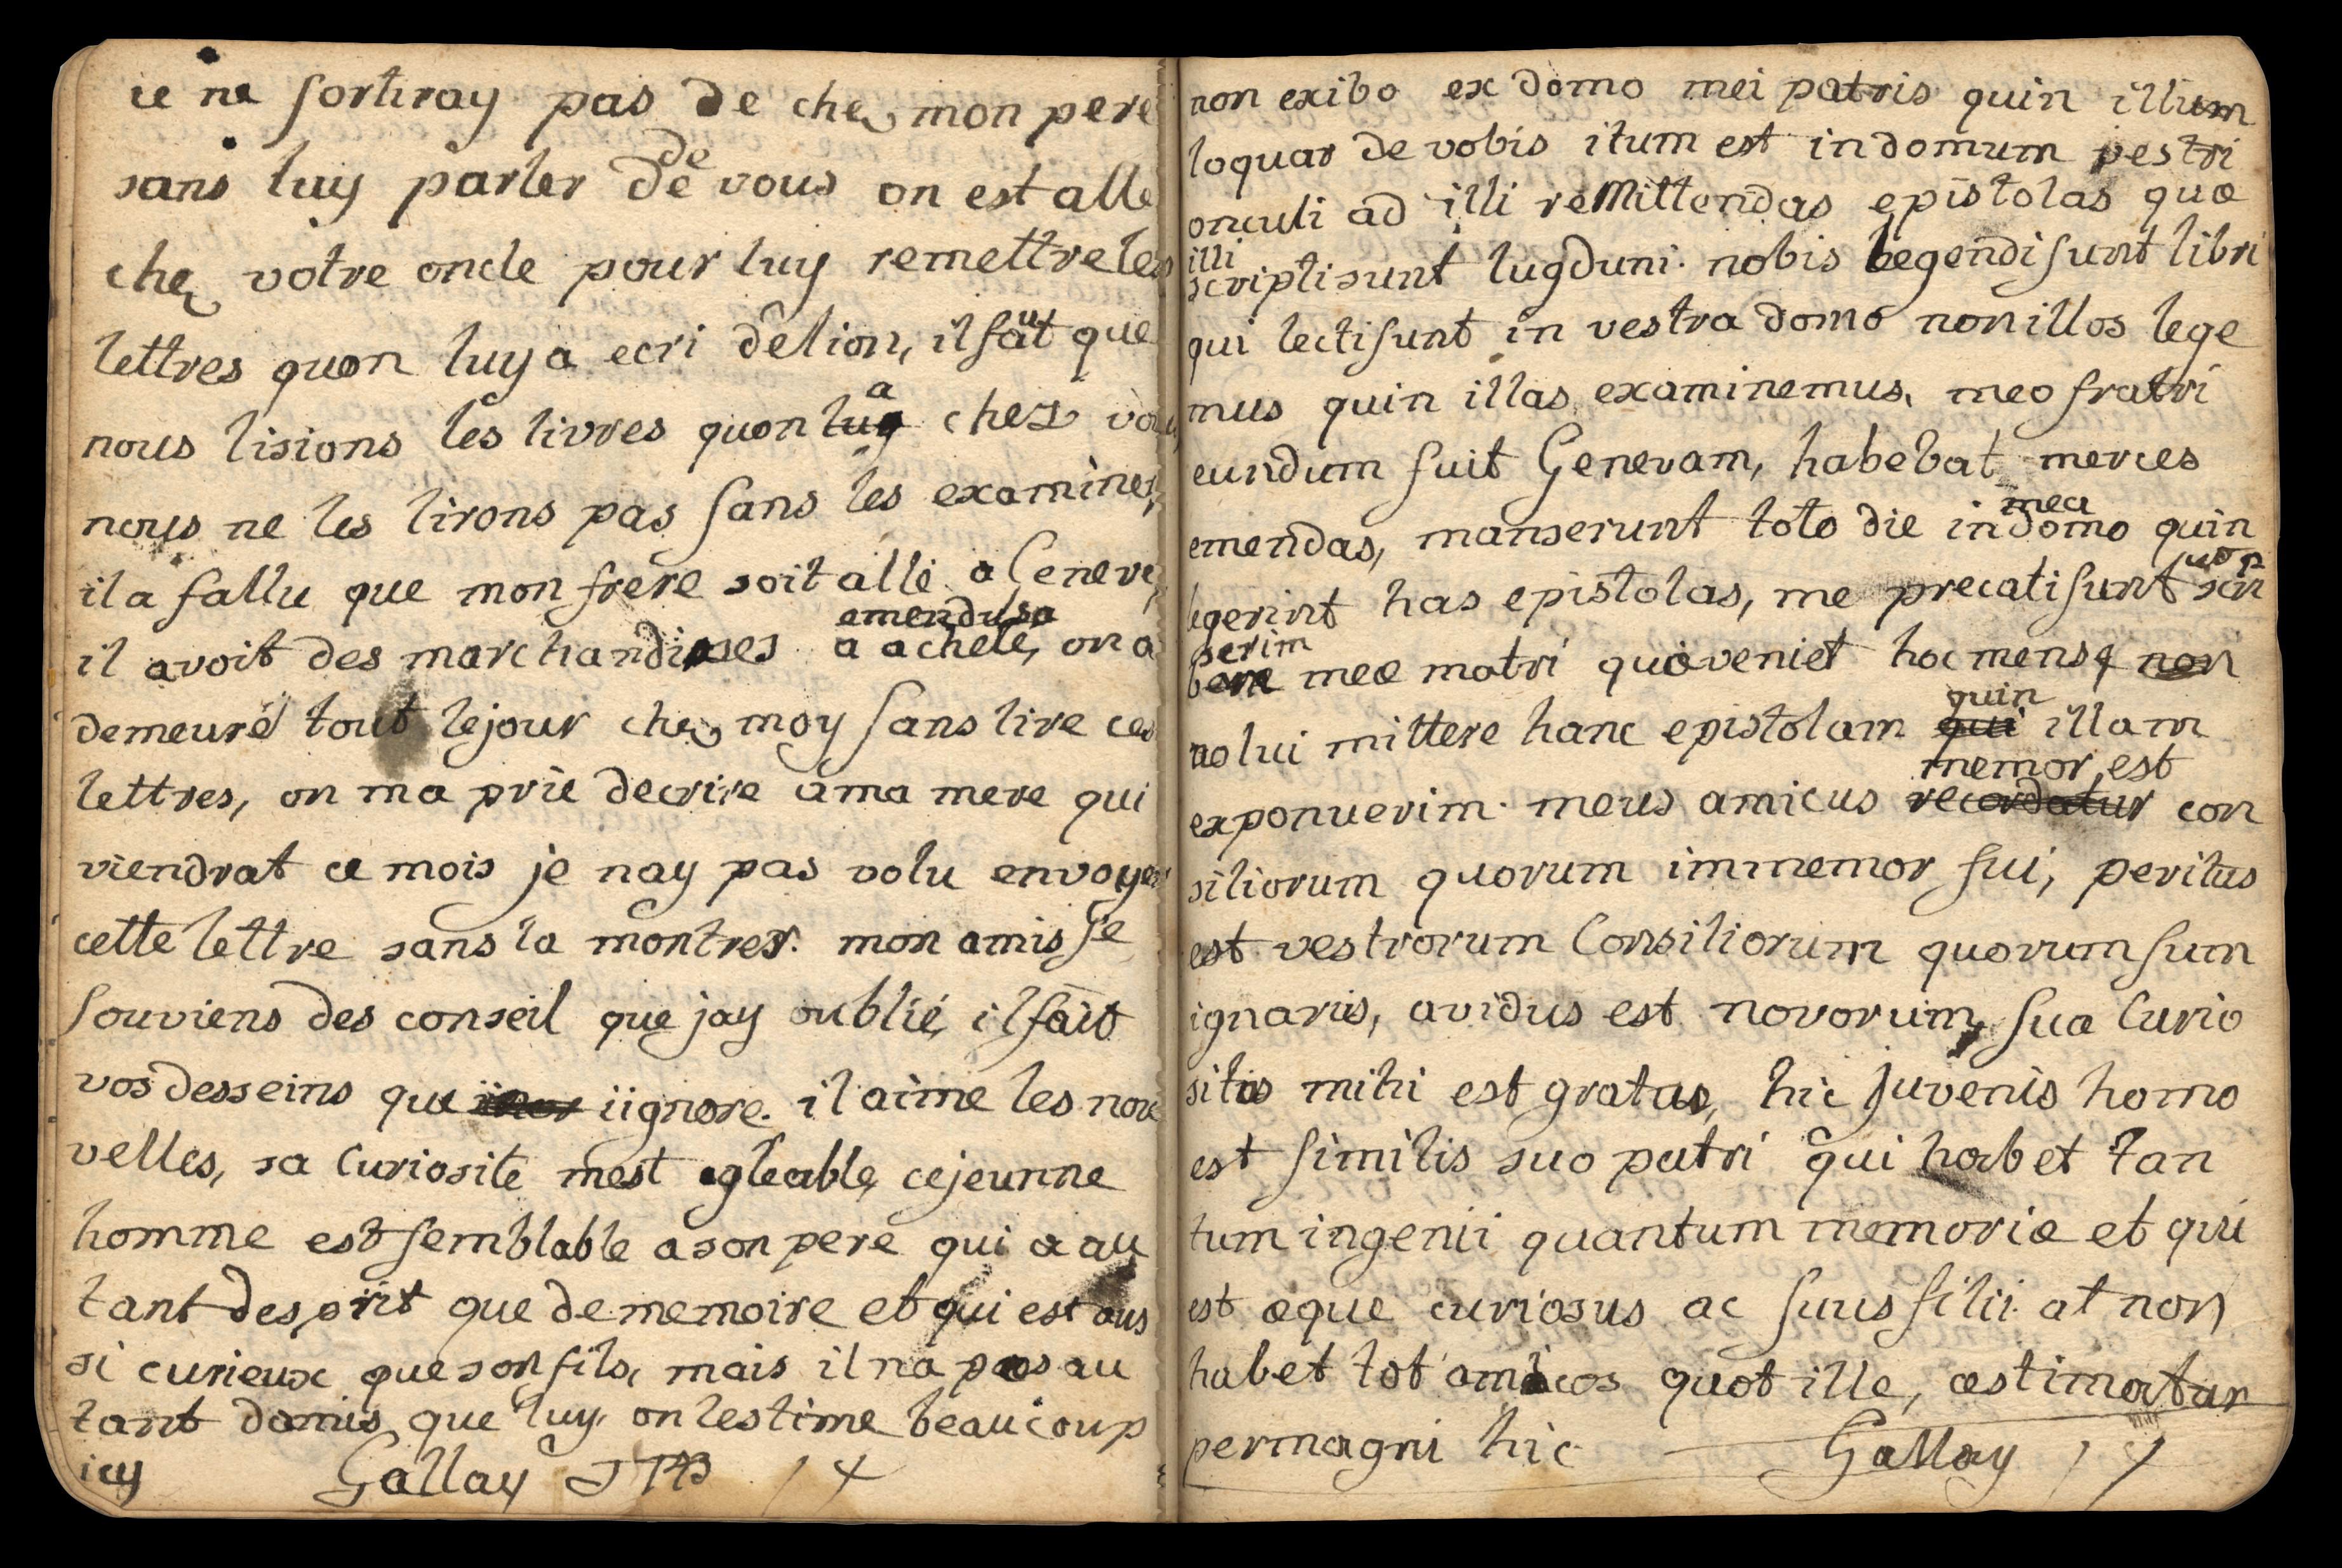 ie ne sortiray pas de chez mon pere
sans luy parler de de vous on est allé
chez votre oncle pour luy remettre les
lettres quon luy a ecri de lion, il faut que
nous lisions les livres quon lu a chez vous
nous ne les lirons pas sans les examiner,
il a fallu que mon frere soit allé a Geneve,
il avoit des marchandises a acheté, on a
emendusa
demeuré tout le jour chez moy sans lire ces
lettres, on ma prié decrire a ma mere qui
viendrat ce mois je nay pas volu envoyer
cette lettre sans la montrer. mon amis se
souviens des conseil que jay oublié, il sait
vos desseins que iignore. il aime les nou
velles, sa Curiosité mest agleable, ce jeunne
homme est semblable a son pere qui a au
tant desprit que de memoire et qui est aus
si curieux que son fils, mais il na pas au
tant damis que luy, on lestime beaucoup
icy Gallay J
non exibo ex domo mei patris quin illum
loquar de vobis itum est in domum vestri
onculi ad illi remittendas epistolas quæ
illi
scripti sunt lugduni. nobis legendi sunt libri
qui lecti sunt in vestra domo non illos lege
mus quin illas examinemus, meo fratri
eundum fuit Genevam, habebat merces
emendas, manserunt toto die in mea domo quin
legerint has epistolas, me precati sunt
serim
meæ matri quæ veniet hoc mense non
nolui mittere hanc epistolam qui quin illam
exponuerim. meus amicus recordatur memor est con
siliorum quorum immemor fui, peritus
est vestrorum Consiliorum quorum sum
ignarus, avidus est novorum, sua Curio
sitas mihi est gratas, hic juvenis homo
est similis suo patri qui habet tan
tum ingenii quantum memoriæ et qui
est æque curiosus ac suus filii at non
habet tot amicos quot ille, æstimatur
permagni hic Gallay